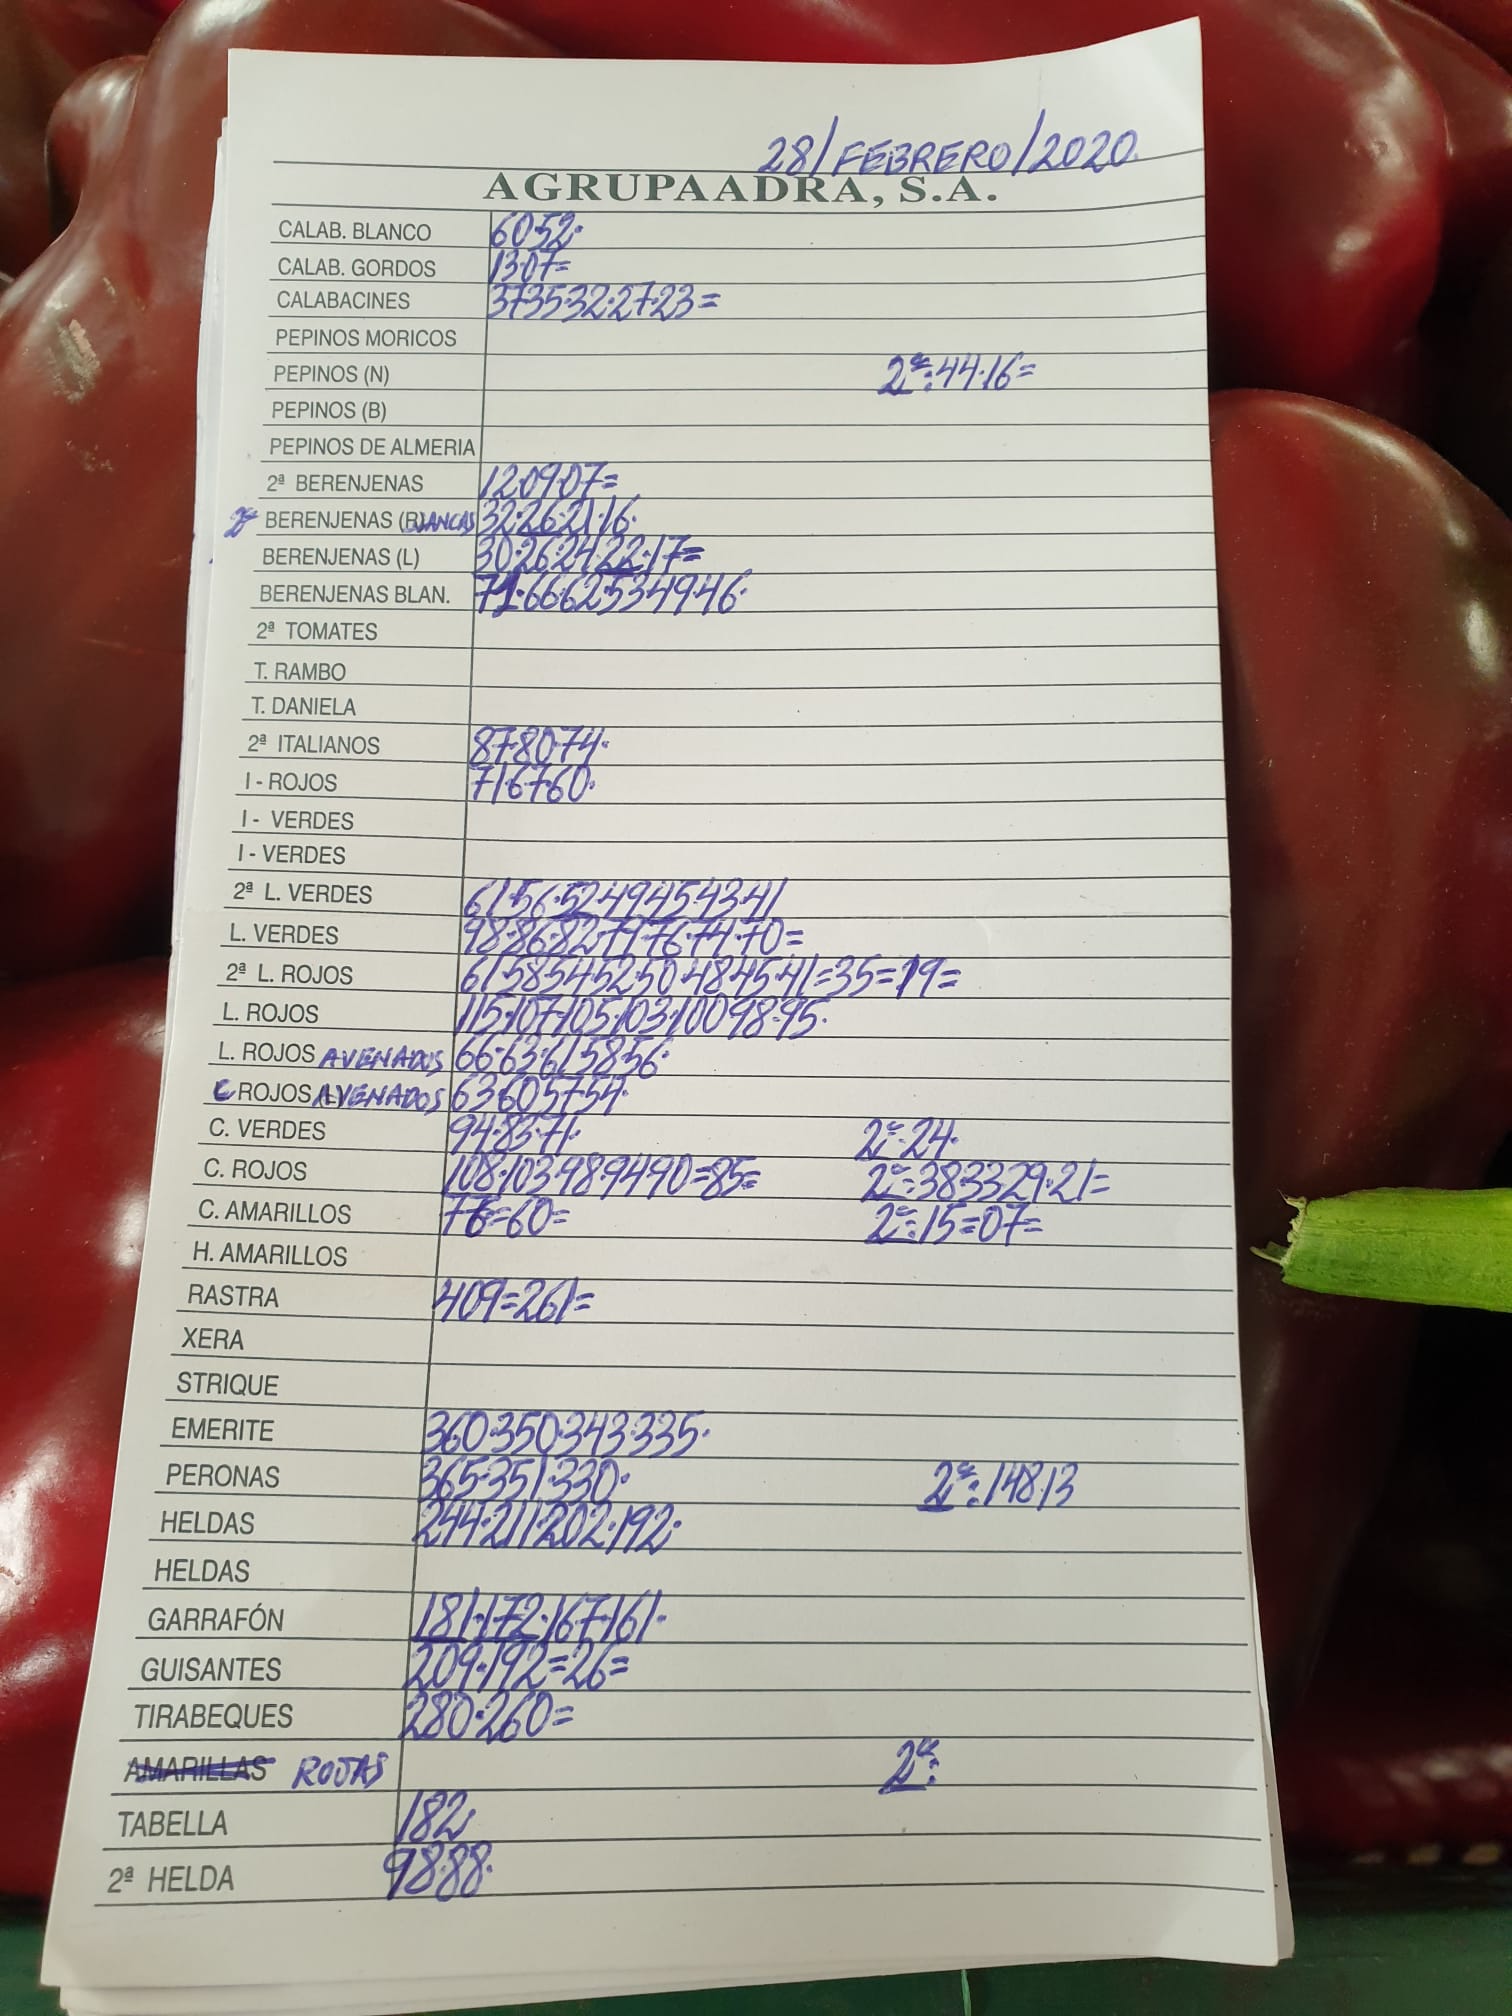 28/FEBRERO/2020.
AGRUPAADRA, S.A.
CALAB. BLANCO 60·52·
CALAB. GORDOS 13·07=
CALABACINES 37·35·32·27·23=
PEPINOS MORICOS
PEPINOS (N) 2ª:44·16=
PEPINOS (B)
PEPINOS DE ALMERIA
2ª BERENJENAS 12·09·07=
2ª BERENJENAS (BLANCAS 32·26·21·16·
BERENJENAS (L) 30·26·24·22·17=
BERENJENAS BLAN. 71·66·62·53·49·46·
2ª TOMATES
T. RAMBO
T. DANIELA
2ª ITALIANOS 87·80·74·
I - ROJOS 71·67·60·
I - VERDES
I - VERDES
2ª L. VERDES 61·56·52·49·45·43·41
L. VERDES 98·86·82·79·76·74·70=
2ª L. ROJOS 61·58·54·52·50·48·45·41=35=19=
L. ROJOS 115·107·105·103·100·98·95·
L. ROJOS AVENADOS 66·63·61·58·56·
C ROJOS AVENADOS 63·60·57·54·
C. VERDES 94·83·71· 2ª·24·
C. ROJOS 108·103·98·94·90=85= 2ª=38·33·29·21=
C. AMARILLOS 76=60= 2ª:15=07=
H. AMARILLOS
RASTRA 409=261=
XERA
STRIQUE
EMERITE 360·350·343·335·
PERONAS 365·351·330· 2ª:148·13
HELDAS 244·211·202·192·
HELDAS
GARRAFÓN 181·172·167·161·
GUISANTES 209·192=26=
TIRABEQUES 280·260=
AMARILLAS ROJAS 2ª:
TABELLA 182·
2ª HELDA 98·88·